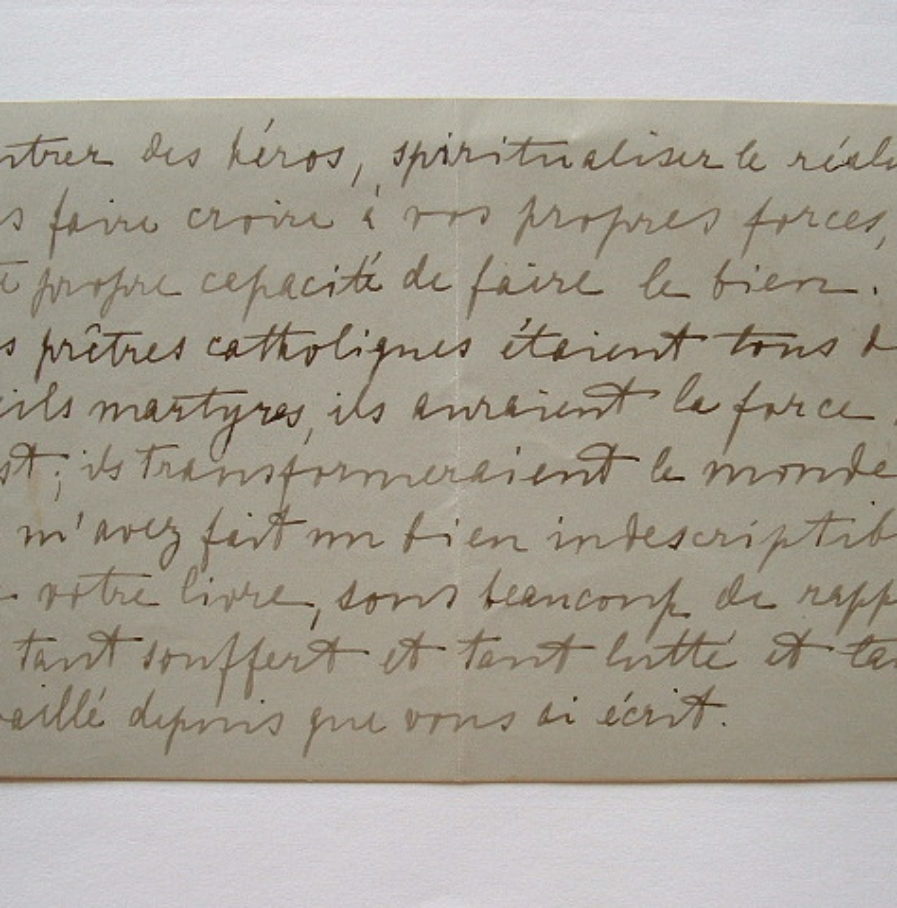 ntrer des héros, spiritualiser le réali
s faire croire à vos propres forces,
propre capacité de faire le bien.
s prêtres catholiques étaient tous d
eils martyres, ils auraient la force
st; ils transformeraient le monde
m'avez fait un bien indescriptib
votre livre, sous beaucoup de rapp
tant souffert et tant lutté et ta
vaillé depuis que vous ai écrit.